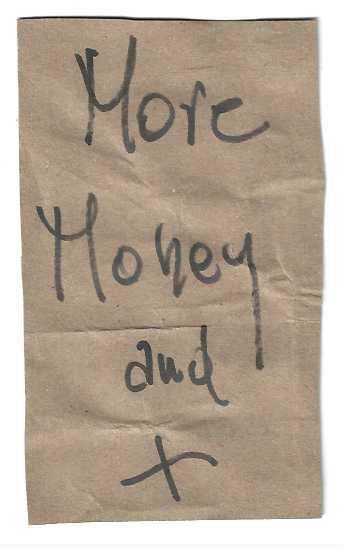 More
Money
and
+